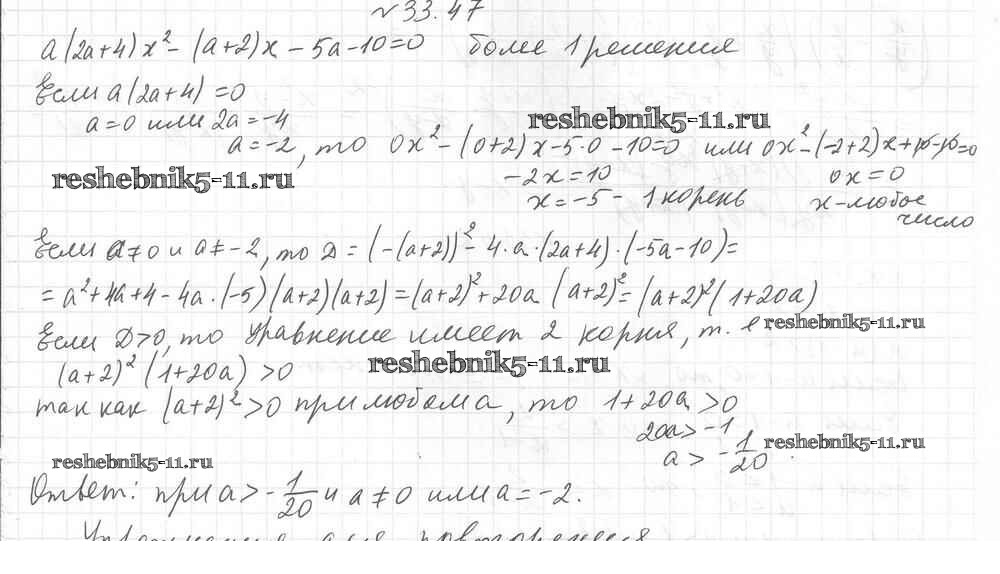 №33.47
a(2a+4)x² - (a+2)x - 5a - 10 = 0 более 1 решения
Если a(2a+4) = 0
a=0 или 2a = -4
reshebnik5-11.ru
a = -2, то 0x² - (0+2)x - 5·0 - 10 = 0 или 0x² - (-2+2)x + 10 - 10 = 0
reshebnik5-11.ru
-2x = 10 0x = 0
x = -5 - 1 корень x - любое
число
Если a ≠ 0 и a ≠ -2, то D = (-(a+2))² - 4·a·(2a+4)·(-5a-10) =
= a² + 4a + 4 - 4a·(-5)(a+2)(a+2) = (a+2)² + 20a (a+2)² = (a+2)²(1+20a)
Если D > 0, то уравнение имеет 2 корня, т. е
reshebnik5-11.ru
reshebnik5-11.ru
(a+2)² (1+20a) > 0
так как (a+2)² > 0 при любом a, то 1+20a > 0
20a > -1
reshebnik5-11.ru
a > -1/20.
reshebnik5-11.ru
Ответ: при a > -1/20 и a ≠ 0 или a = -2.